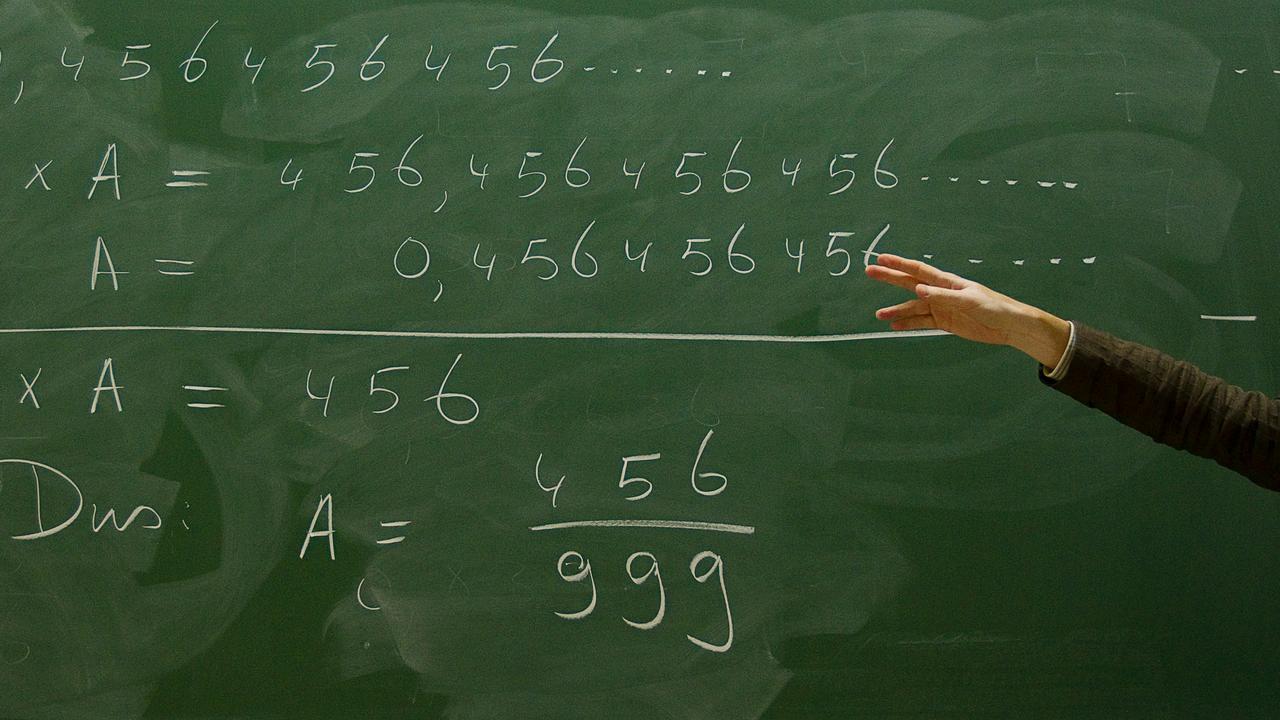 , 456456456.......
x A = 456,456456456.......
A = 0,456456456......
x A = 456
Dus: A = 456
999